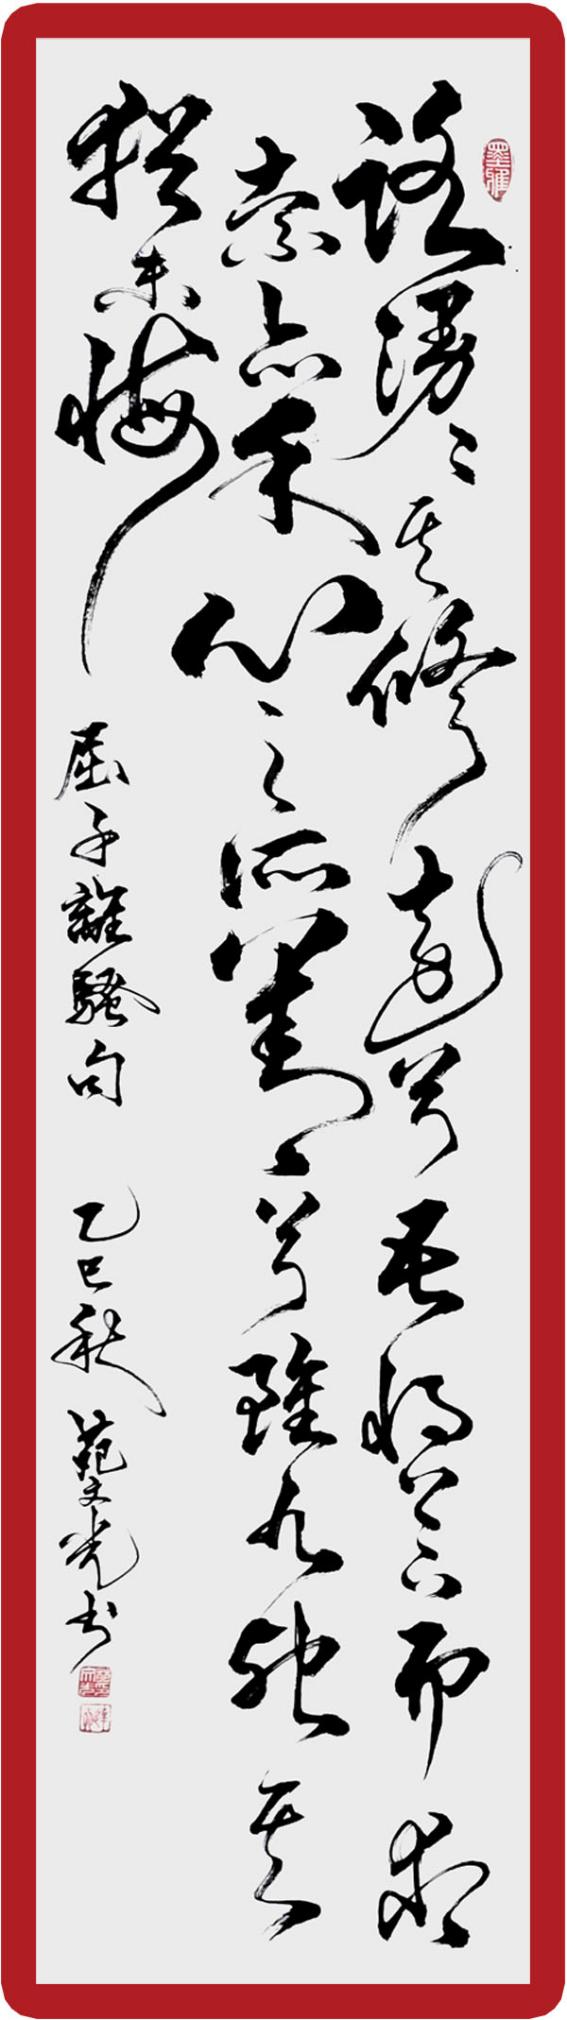 路漫〻其修遠兮吾將上下而求
索亦余心之所善兮雖九死其
猶未悔
屈子離騷句 乙巳秋 文光书